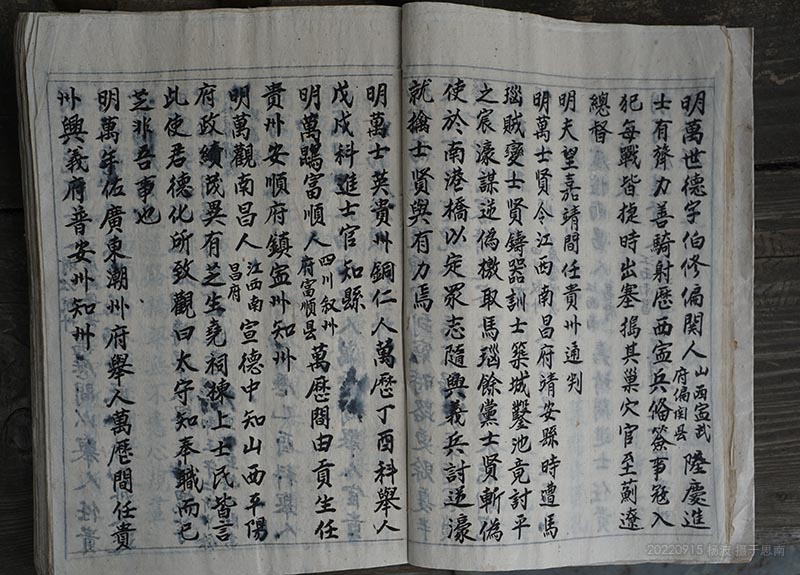 明萬世德字伯修偏関人山西寍武府偏関县陸慶進
士有膂力善騎射歷西寍兵俻簽事冦入
犯每戰皆捷時出塞搗其巢穴官至薊遼
總督
明夫望嘉靖間任貴州通判
明萬士賢令江西南昌府靖安縣時遭馬
瑙賊變士賢鑄器訓士築城鑿池竟討平
之宸濠謀逆偽檄取馬瑙餘黨士賢斬偽
使於南港橋以定眾志隨興義兵討逆濠
就擒士賢與有力焉
明萬士英貴州銅仁人萬歷丁酉科舉人
戊戍科進士官知縣
明萬富順人四川叙州府富順县萬歷間由貢生任
貴州安順府鎮寍州知州
明萬觀南昌人江西南昌府宣德中知山西平陽
府政績茂異有芝生堯祠棟上士民皆言
此使君德化所致觀曰太守知奉職而已
芝非吾事也
明萬年佐廣東潮州府舉人萬歷間任貴
州興義府普安州知州
20220915 杨波 摄于思南